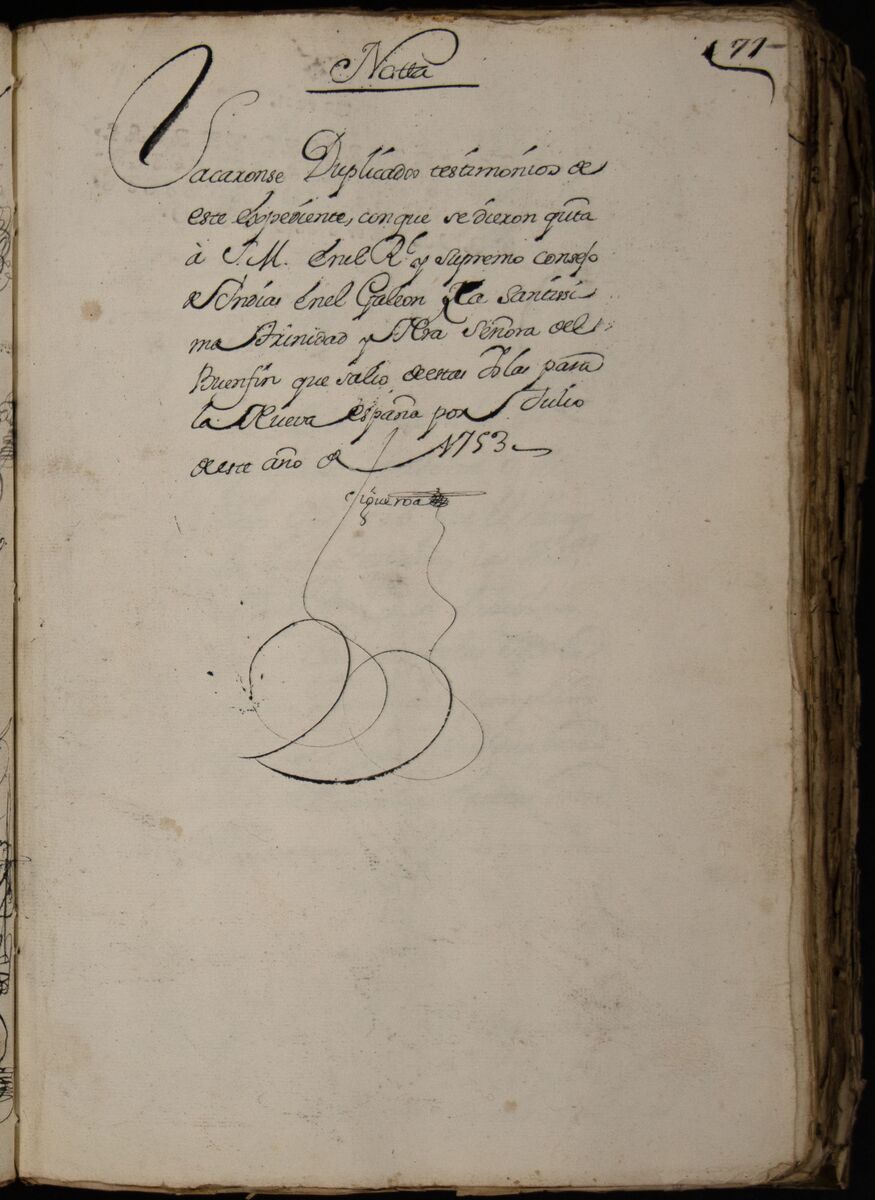 Notta
77
Sacaronse Duplicados testimonios de
este Expediente, con que se dieron quta
à S. M. Enel Rl. y supremo consejo
de Indias Enel Galeon La Santissi
ma Trinidad y Nra Señora del
Buenfin que salio destas Yslas para
la Nueva españa por Julio
deste año de 1753
Figueroa